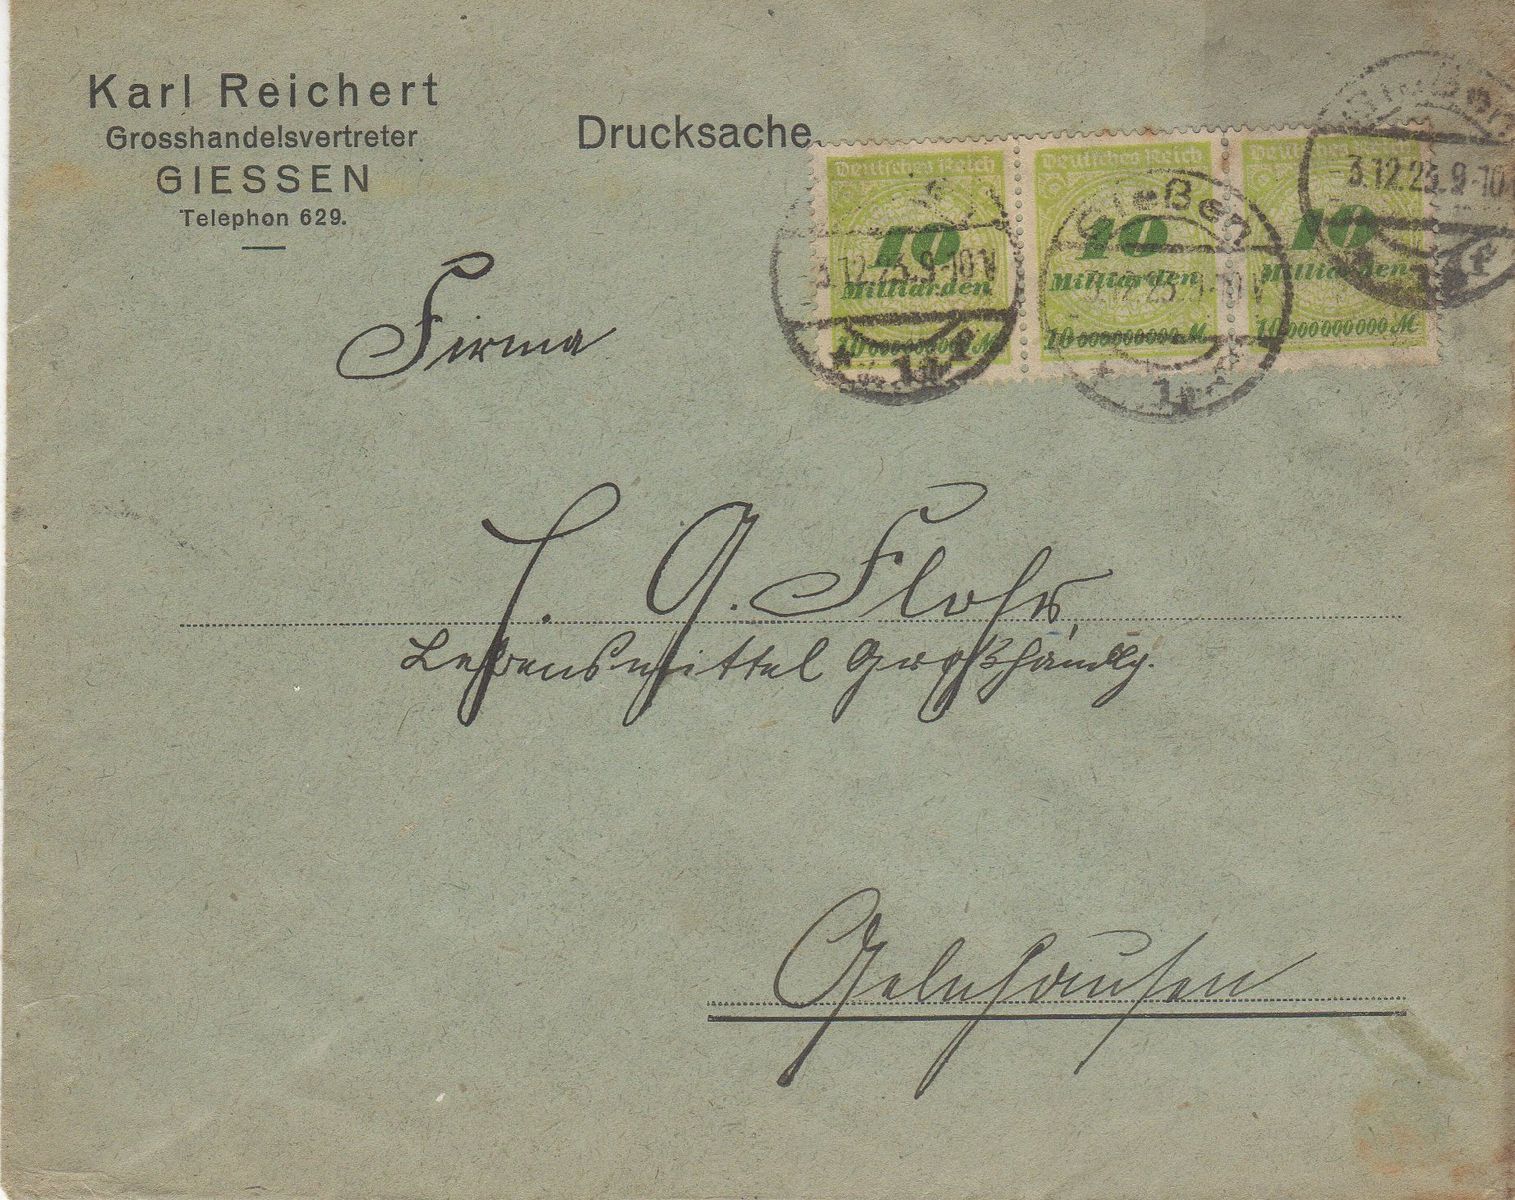 Karl Reichert
Grosshandelsvertreter
GIESSEN
Telephon 629.
Drucksache
Deutsches Reich
10
Milliarden
10000000000 M
Deutsches Reich
10
Milliarden
10000000000 M
Deutsches Reich
10
Milliarden
10000000000 M
3.12.23.9-10V
* 1n f
Gießen
3.12.23.9-10V
* 1n f
Gießen
3.12.23.9-10
1n f
Firma
J. G. Flohr,
Lebensmittel Großhandlg.
Gelnhausen